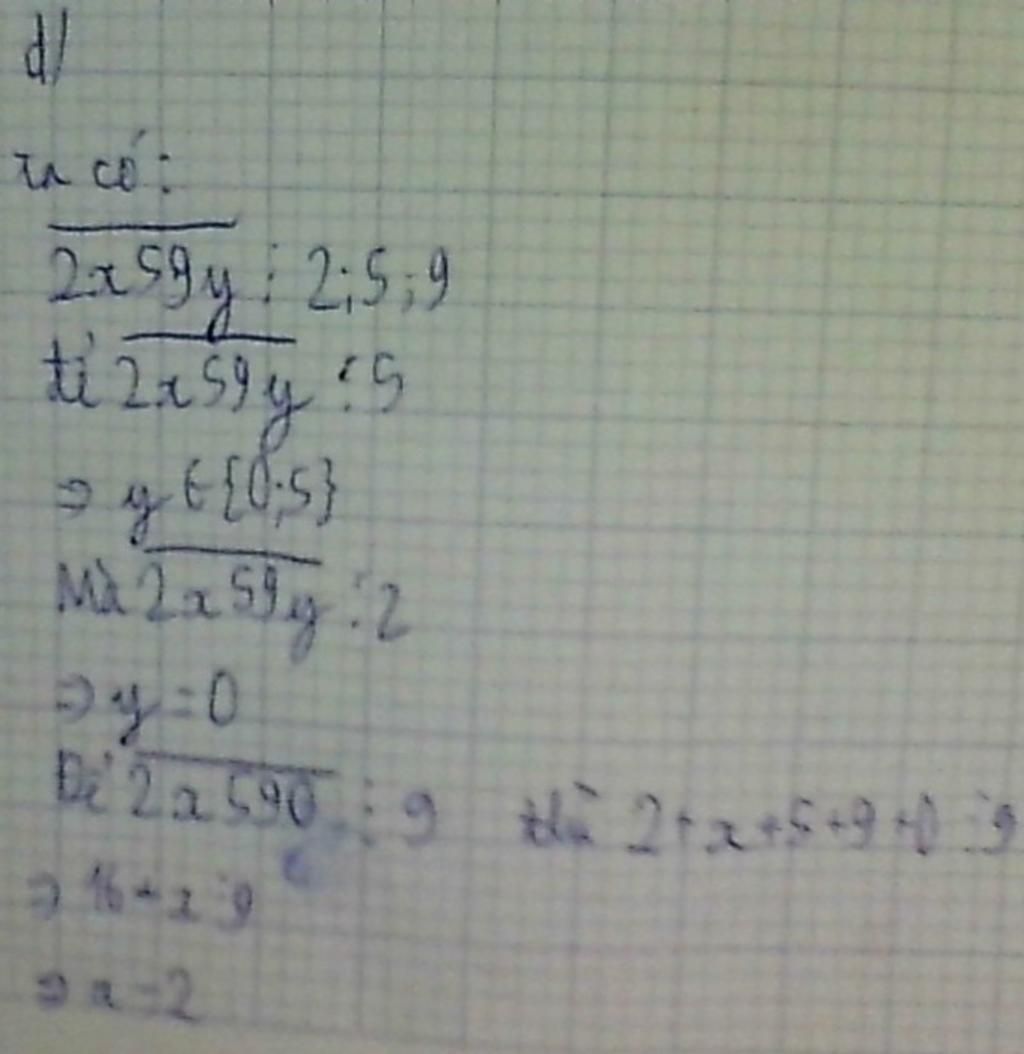 d/
Ta có:
2x59y ⋮ 2;5;9
Để 2x59y ⋮ 5
⇒ y ∈ {0;5}
Mà 2x59y ⋮ 2
⇒ y = 0
Để 2x590 ⋮ 9 thì 2+x+5+9+0 ⋮ 9
⇒ 16+x ⋮ 9
⇒ x = 2